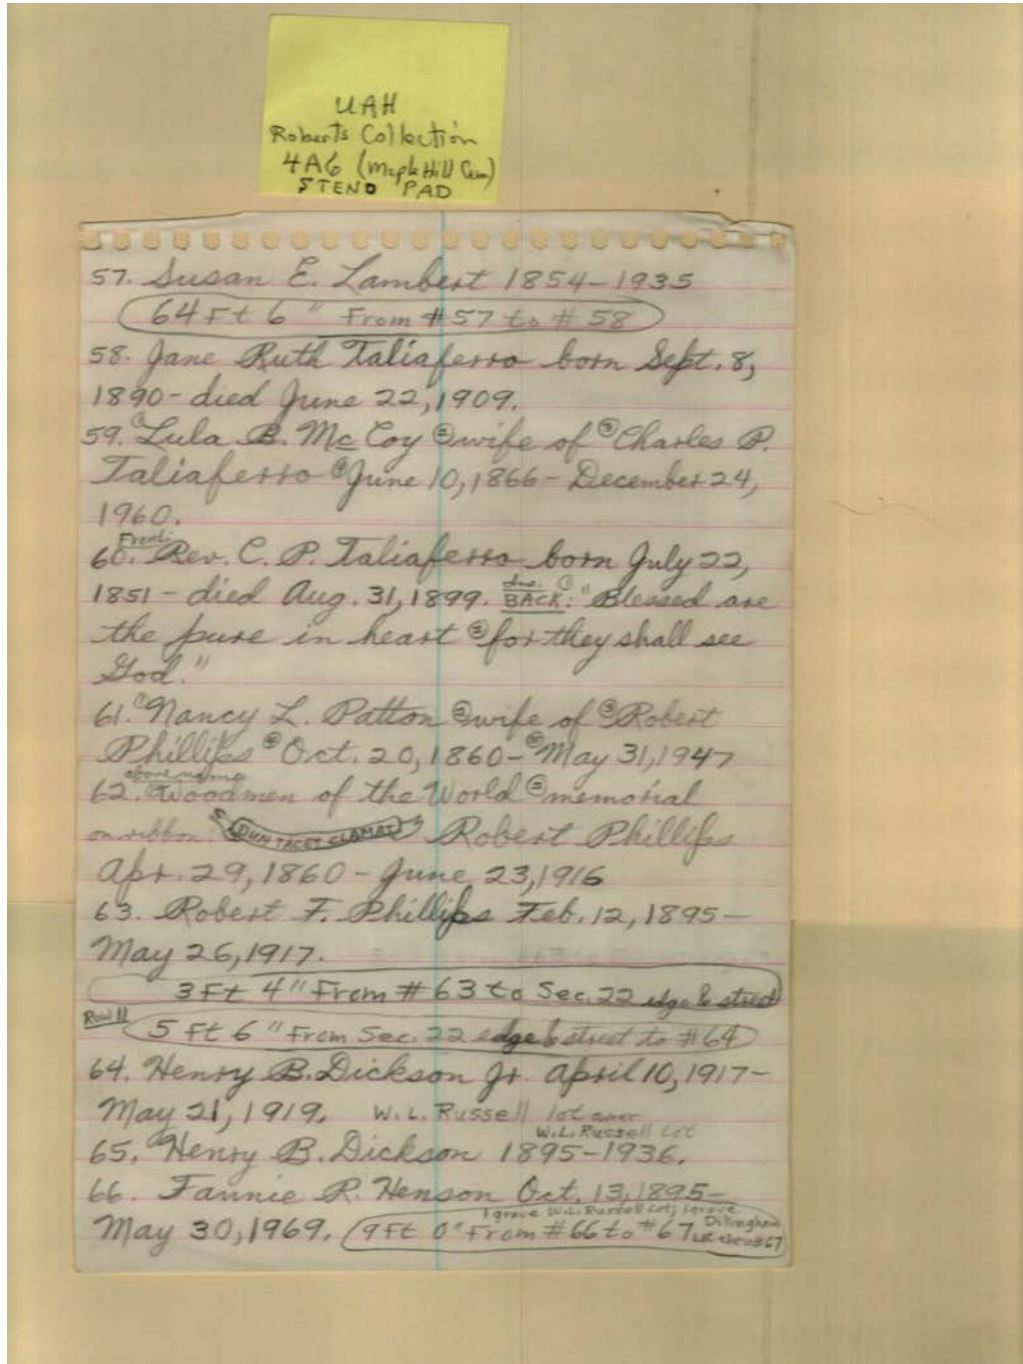 UAH
Roberts Collection
4A6 (Maple Hill Cem)
STENO PAD
57. Susan E. Lambert 1854-1935
64 Ft 6" From #57 to #58
58. Jane Ruth Taliaferro born Sept. 8,
1890-died June 22, 1909.
59. ①Lula B. McCoy ②wife of ③Charles P.
Taliaferro ④June 10, 1866-December 24,
1960.
Front:
60. Rev. C. P. Taliaferro born July 22,
1851-died Aug. 31, 1899. BACK: ①"Blessed are
the pure in heart ②for they shall see
God."
61. ①Nancy L. Patton ②wife of ③Robert
Phillips ④Oct. 20, 1860-⑤May 31, 1947
above name
62. ①Woodmen of the World ②memorial
on ribbon: DUM TACET CLAMAT Robert Phillips
Apr. 29, 1860-June 23, 1916
63. Robert F. Phillips Feb. 12, 1895-
May 26, 1917.
3 Ft 4" From #63 to Sec. 22 edge & street
Row 11
5 Ft 6" From Sec. 22 edge & street to #64
64. Henry B. Dickson Jr. April 10, 1917-
May 21, 1919. W.L. Russell lot
W.L. Russell Lot
65. Henry B. Dickson 1895-1936.
66. Fannie R. Henson Oct. 13, 1895-
1 grave W.L. Russell Lot; 1 grave
May 30, 1969. 9 Ft 0" From #66 to #67 Dillingham
Lot then #67